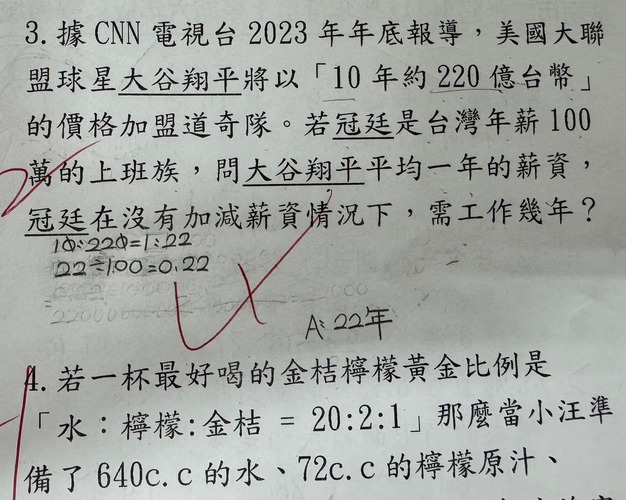 3. 據 CNN 電視台 2023 年年底報導，美國大聯
盟球星大谷翔平將以「10 年約 220 億台幣」
的價格加盟道奇隊。若冠廷是台灣年薪 100
萬的上班族，問大谷翔平平均一年的薪資，
冠廷在沒有加減薪資情況下，需工作幾年？
10:220=1:22
22÷100=0.22
A: 22年
4. 若一杯最好喝的金桔檸檬黃金比例是
「水：檸檬:金桔 = 20:2:1」那麼當小汪準
備了 640c.c 的水、72c.c 的檸檬原汁、